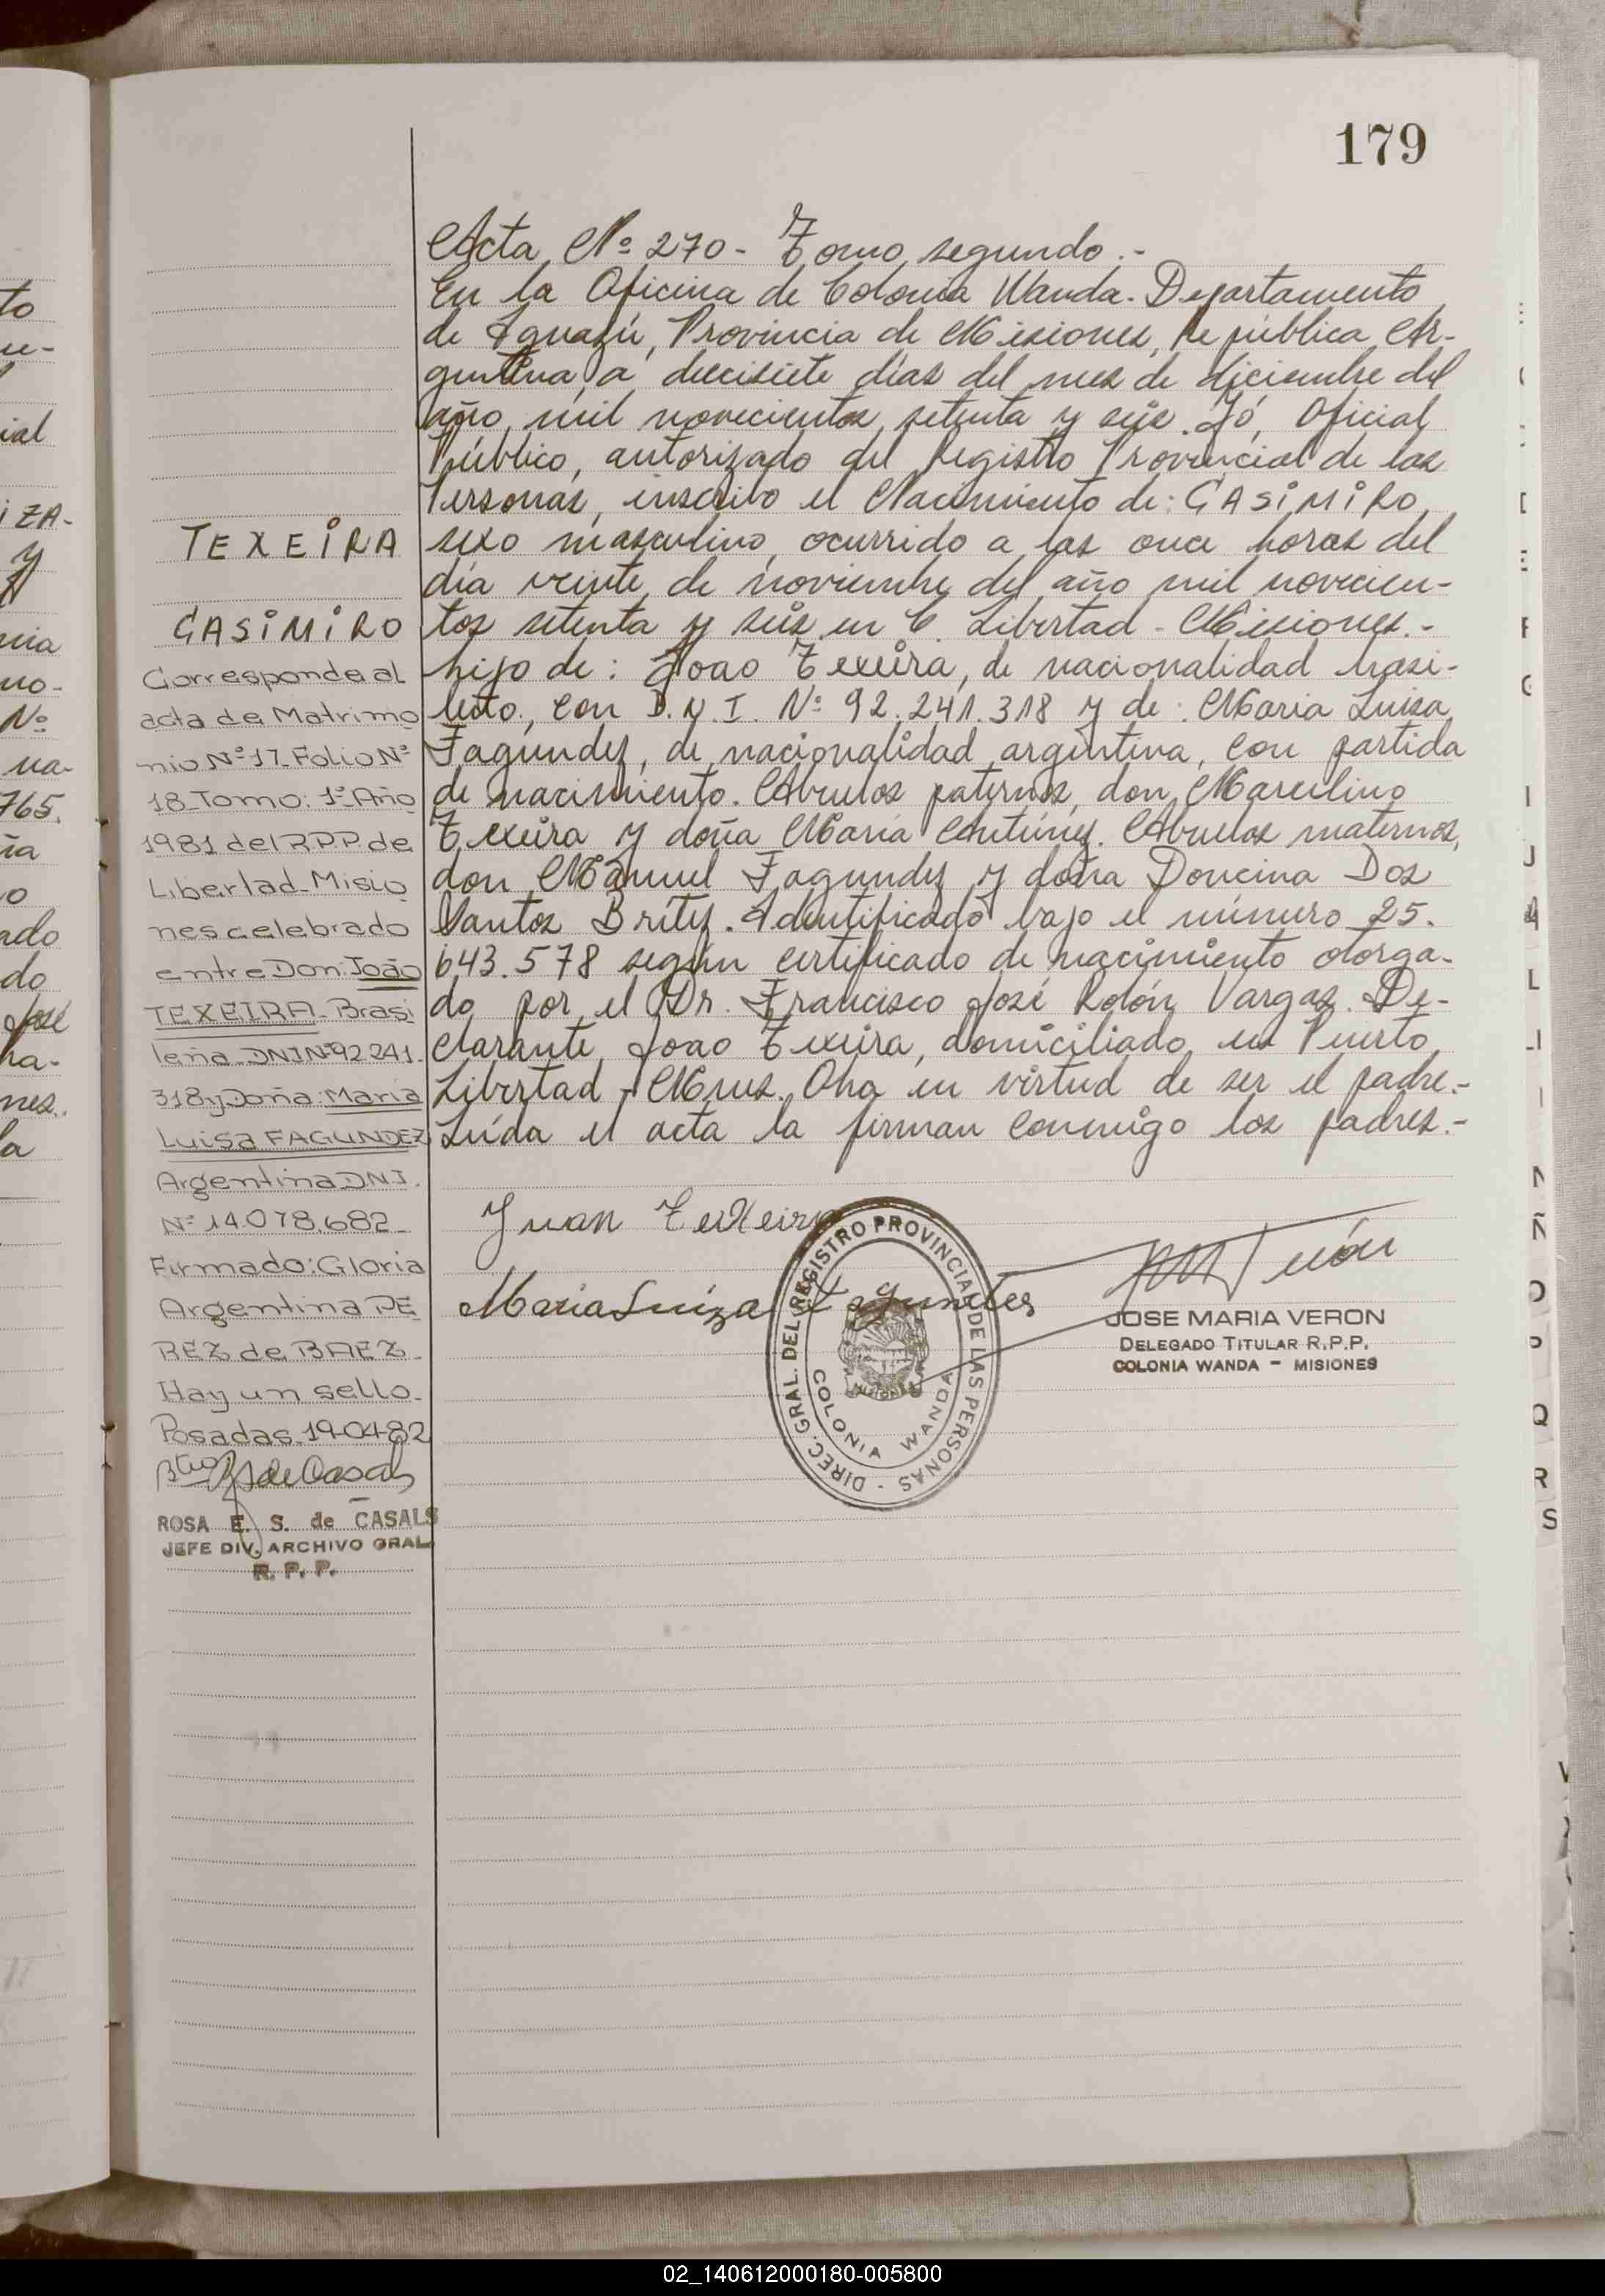 179
Acta Nº 270 - Tomo segundo.-
En la Oficina de Colonia Wanda. Departamento
de Iguazú, Provincia de Misiones, República Ar-
gentina, a diecisiete días del mes de diciembre del
año mil novecientos setenta y seis. Yó, Oficial
Público, autorizado del Registro Provincial de las
Personas, inscribo el Nacimiento de: CASIMIRO
sexo masculino, ocurrido a las once horas del
día veinte de noviembre del año mil novecien-
tos setenta y seis en C. Libertad - Misiones.-
hijo de: Joao Texeira, de nacionalidad brasi-
leño, con D.N.I. Nº 92.241.318 y de: Maria Luisa
Fagundez, de nacionalidad argentina, con partida
de nacimiento. Abuelos paternos, don Marcelino
Texeira y doña María Antúnez. Abuelos maternos,
don Manuel Fagundez y doña Doncina Dos
Santos Brítez. Identificado bajo el número 25.
643.578 según certificado de nacimiento otorga-
do por el Dr. Francisco José Rolón Vargas. De-
clarante, Joao Texeira, domiciliado en Puerto
Libertad - Mnes. Oha en virtud de ser el padre.-
Leída el acta la firman conmigo los padres.-
Juan Teixeira
Maria Luiza Fagundes
DIREC. GRAL. DEL REGISTRO PROVINCIAL DE LAS PERSONAS -
COLONIA WANDA
MISIONES
JOSE MARIA VERON
DELEGADO TITULAR R.P.P.
COLONIA WANDA - MISIONES
TEXEIRA
CASIMIRO
Corresponde al
acta de Matrimo
nio Nº 17 Folio Nº
18 Tomo: 1º Año
1981 del R.P.P. de
Libertad - Misio
nes celebrado
entre Don: João
TEXEIRA - Brasi
leña DNI Nº 92 241.
318 y Doña: Maria
Luisa FAGUNDEZ
Argentina DNI.
Nº 14.078.682 -
Firmado: Gloria
Argentina PE
REZ de BAEZ -
Hay un sello -
Posadas 19-04-82
de Casals
ROSA E. S. de CASALS
JEFE DIV. ARCHIVO GRAL.
R. P. P.
to
ue-
ial
IZA-
y
nia
no-
Nº
na-
765.
ía
o
ado
do
José
ha-
nes.
la
D
F
G
I
J
L
LI
N
Ñ
O
P
Q
R
S
02_140612000180-005800